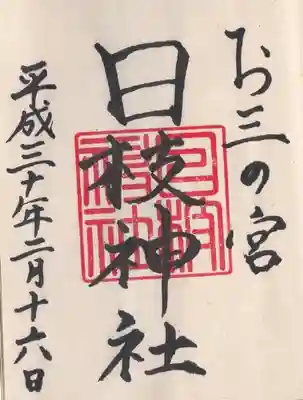 お三の宮
日枝神社
平成三十年二月十六日